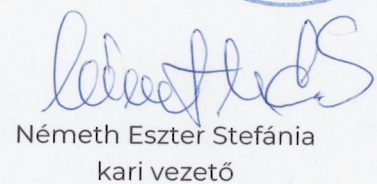 Németh Eszter Stefánia
kari vezető